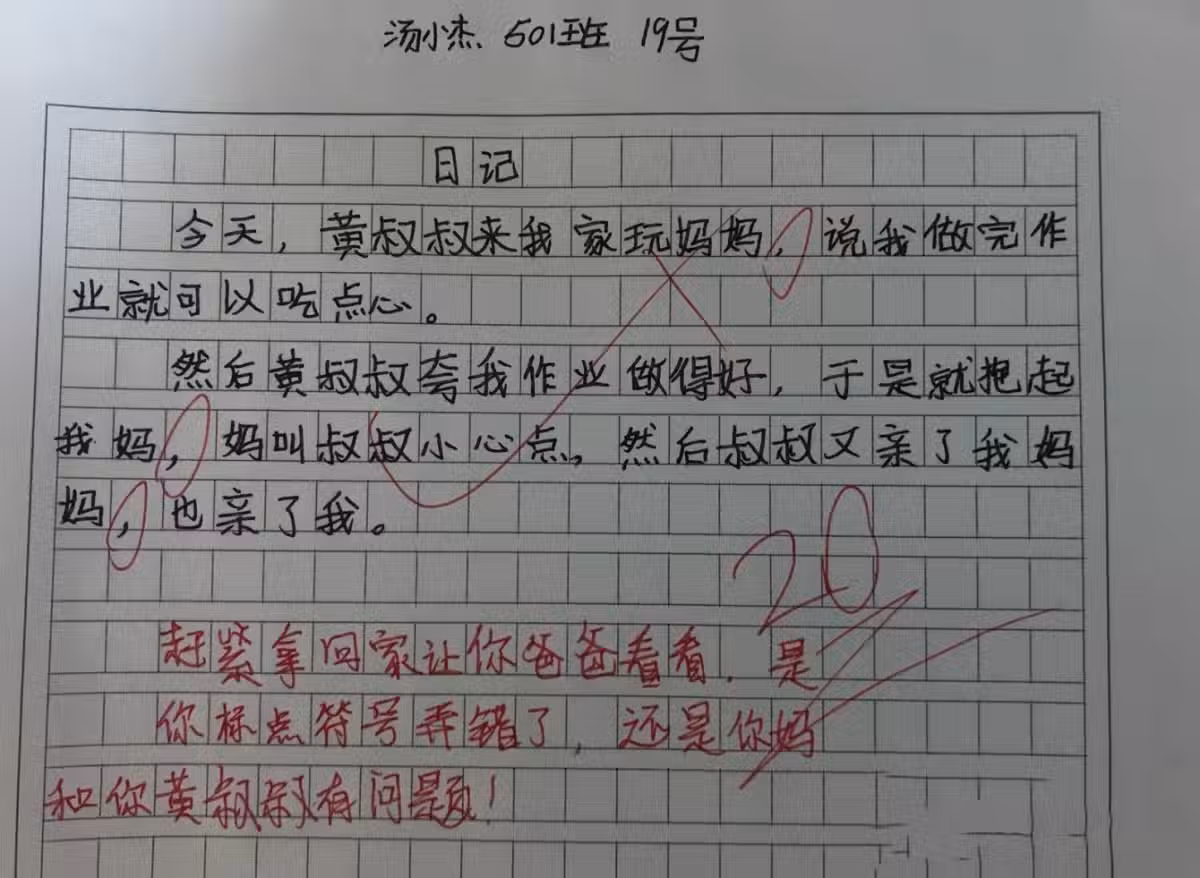 汤小杰、501班 19号
日记
今天，黄叔叔来我家玩妈妈，说我做完作
业就可以吃点心。
然后黄叔叔夸我作业做得好，于是就抱起
我妈，妈叫叔叔小心点，然后叔叔又亲了我妈
妈，也亲了我。
20
赶紧拿回家让你爸爸看看，是
你标点符号弄错了，还是你妈
和你黄叔叔有问题！